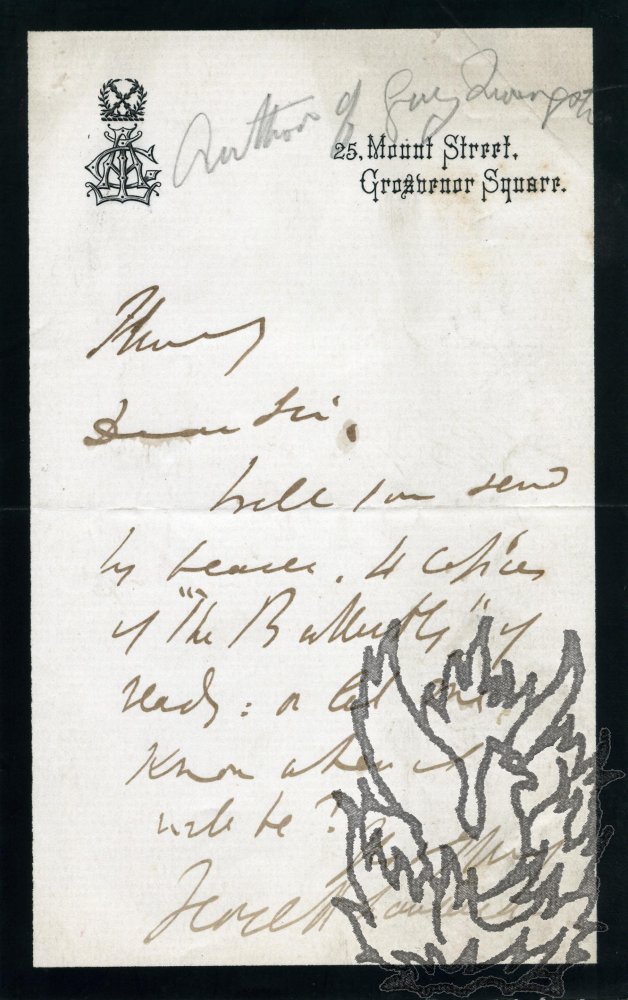 Author of Guy Livingstone
25, Mount Street,
Grosvenor Square.
Thursday
Dear Sir,
Will you send
by bearer, 4 copies
of "The Butterfly" if
ready: or let me
know when it
will be?